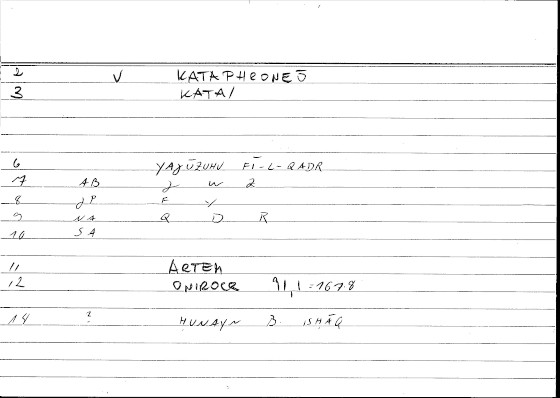 2 V KATAPHRONEŌ
3 KATA/
6 YAǦŪZUHU FĪ-L-QADR
7 AB ǧ W Z
8 ǧP F Y
9 NA Q D R
10 SA
11 ARTEM
12 ONIROCR 91,1 = 161.8
14 ? ḤUNAYN B. ISḤĀQ